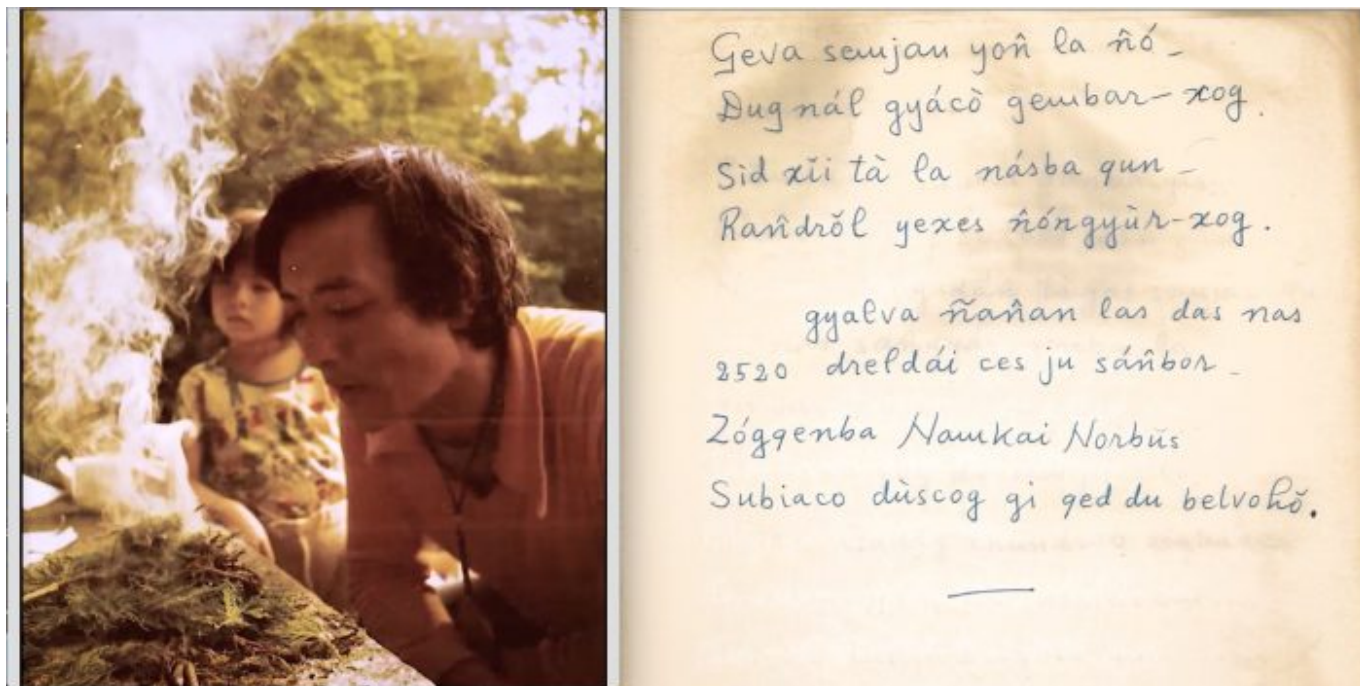 Geva semjan yoṅ la n̂ó -
Dug nál gyácò gembar-xog.
Sid xĭi tà la násba qun -
Ran̂drŏl yexes n̂óngyùr-xog.
gyalva ñan̂an las das nas
2520 dreldái ces ju sán̂bor -
Zógqenba Namkai Norbŭs
Subiaco dùscog gi qed du belvohŏ.